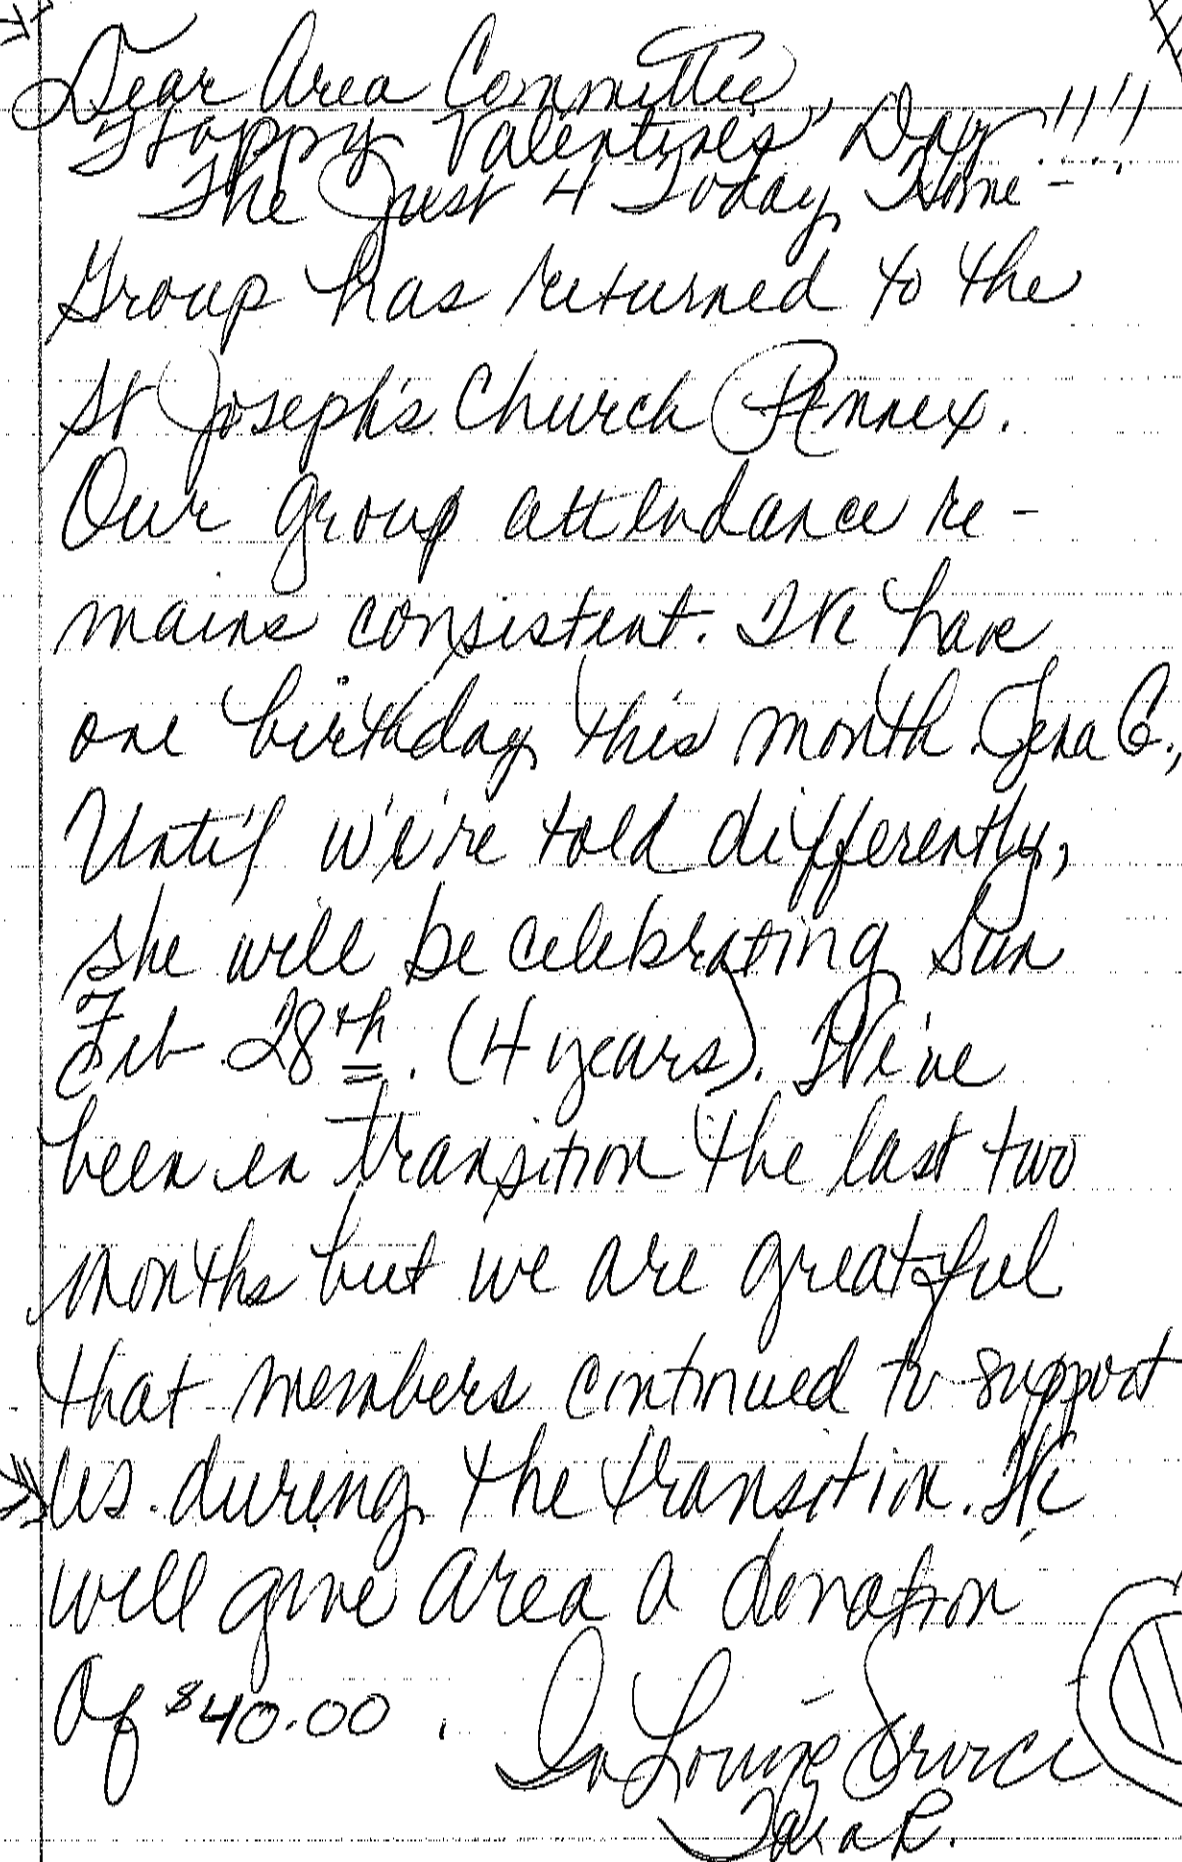 Dear Area Committee,
Happy Valentines' Day!!!!
The Just 4 Today Home-
Group has returned to the
St Joseph's Church Annex.
Our group attendance re-
mains consistent. We have
one birthday this month. Jena C.,
Until we're told differently,
she will be celebrating Sun
Feb 28th. (4 years). We've
been in transition the last two
months but we are greatful
that members continued to support
us during the transition. We
will give area a donation
Of $40.00.
In Loving Service
Tara R.